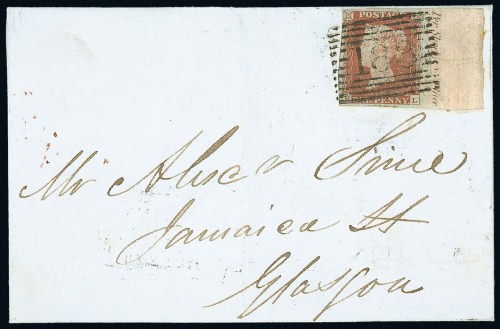 POSTAGE
PENNY
L
Mr Alexr Sime
Jamaica St
Glasgow